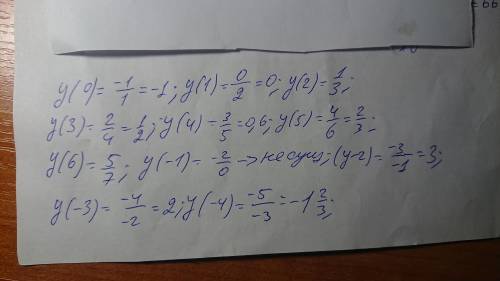 = 66
y(0)= -1/1 = -1; y(1)= 0/2 = 0; y(2)= 1/3;
y(3)= 2/4 = 1/2; y(4)= 3/5 = 0,6; y(5)= 4/6 = 2/3;
y(6)= 5/7; y(-1)= -2/0 → не сущ; (y-2)= -3/-1 = 3;
y(-3)= -4/-2 = 2; y(-4)= -5/-3 = -1 2/3;